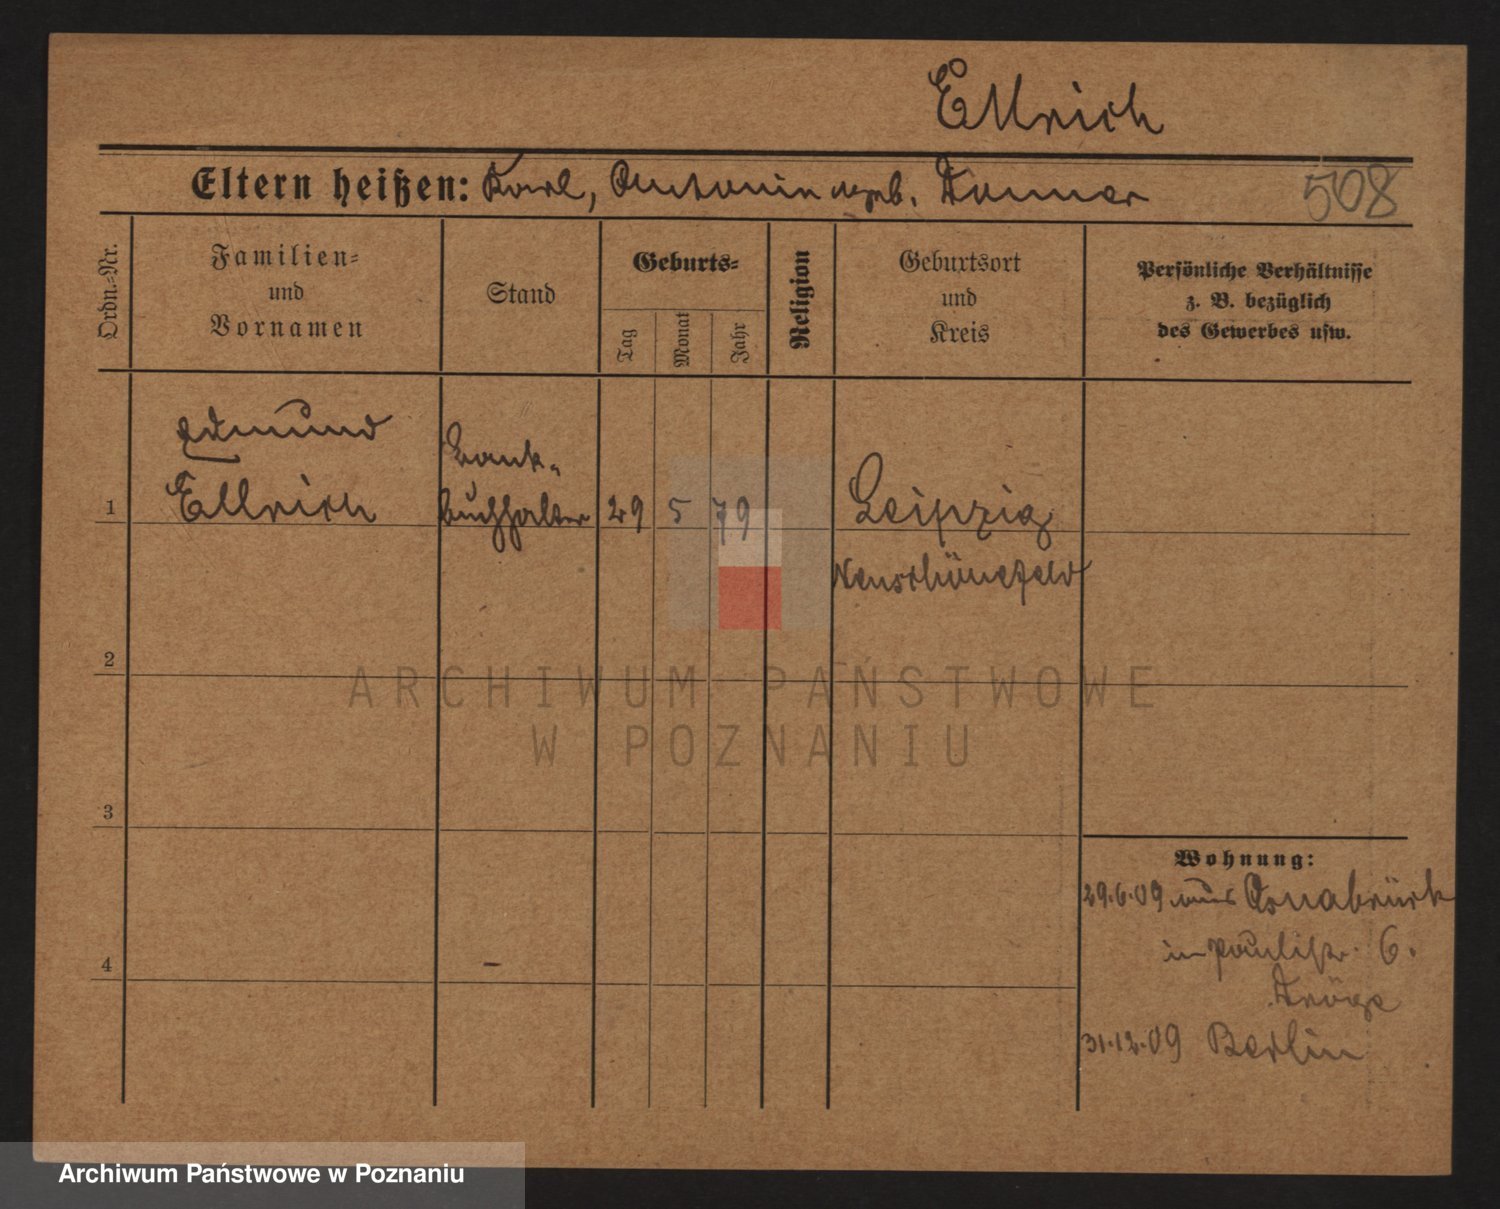 Ellrich
Eltern heißen: Karl, Antonie geb. Donner
508
Ordn.-Nr.
Familien-
und
Vornamen
Stand
Geburts-
Tag
Monat
Jahr
Religion
Geburtsort
und
Kreis
Persönliche Verhältnisse
z. B. bezüglich
des Gewerbes usw.
Edmund
Ellrich
Bank-
buchhalter
1
29 5 79
Leipzig
Neuschönefeld
2
3
4
ARCHIWUM PAŃSTWOWE
W POZNANIU
Wohnung:
29.6.09 aus Osnabrück
in Paulistr. 6.
Dröge
31.12.09 Berlin
Archiwum Państwowe w Poznaniu